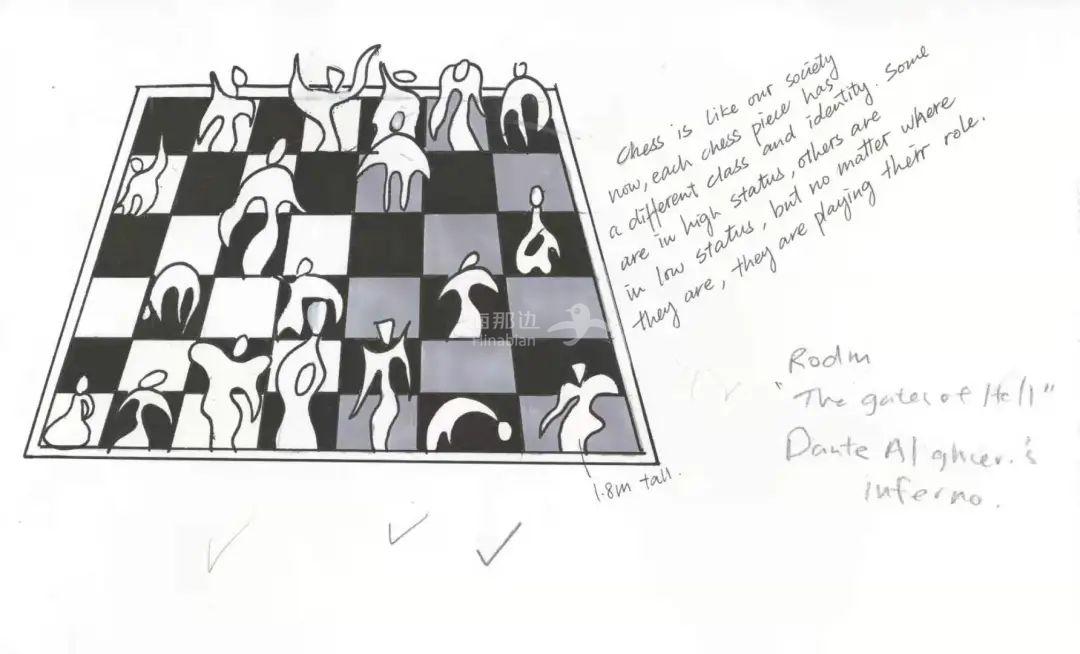 Chess is like our society
now, each chess piece has
a different class and identity. Some
are in high status, others are
in low status, but no matter where
they are, they are playing their role.
海那边
Hinabian
1.8m tall.
Rodin
"The gates of Hell"
Dante Alghier.'s
inferno.